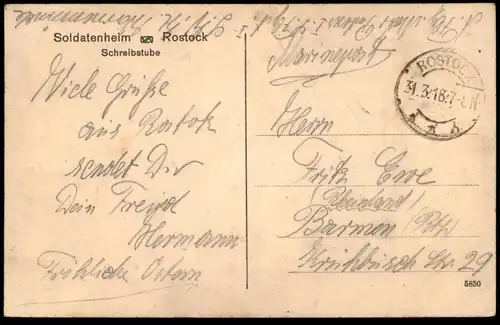 Soldatenheim Rostock
Schreibstube
Viele Grüße
aus Rostok
sendet Dir
Dein Freund
Hermann
Fröhliche Ostern
Marinepost
ROSTOCK
31.3.18.7-8N
Herrn
Fritz Ewe
(Rheinland)
Barmen
Str. 29
5850